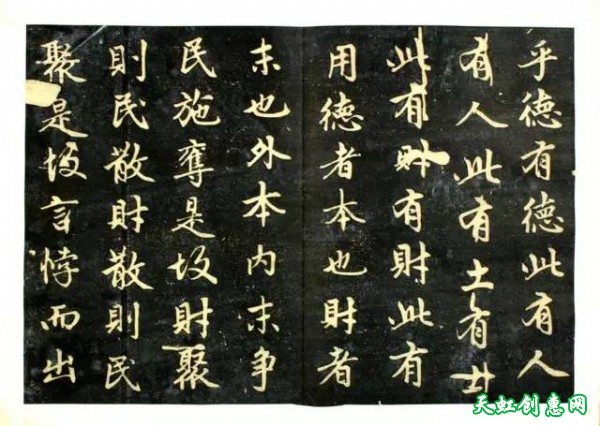 乎德有德此有人
有人此有土有土
此有財有財此有
用德者本也財者
末也外本内末争
民施奪是故財聚
則民散財散則民
聚是故言悖而出
天虹创惠网